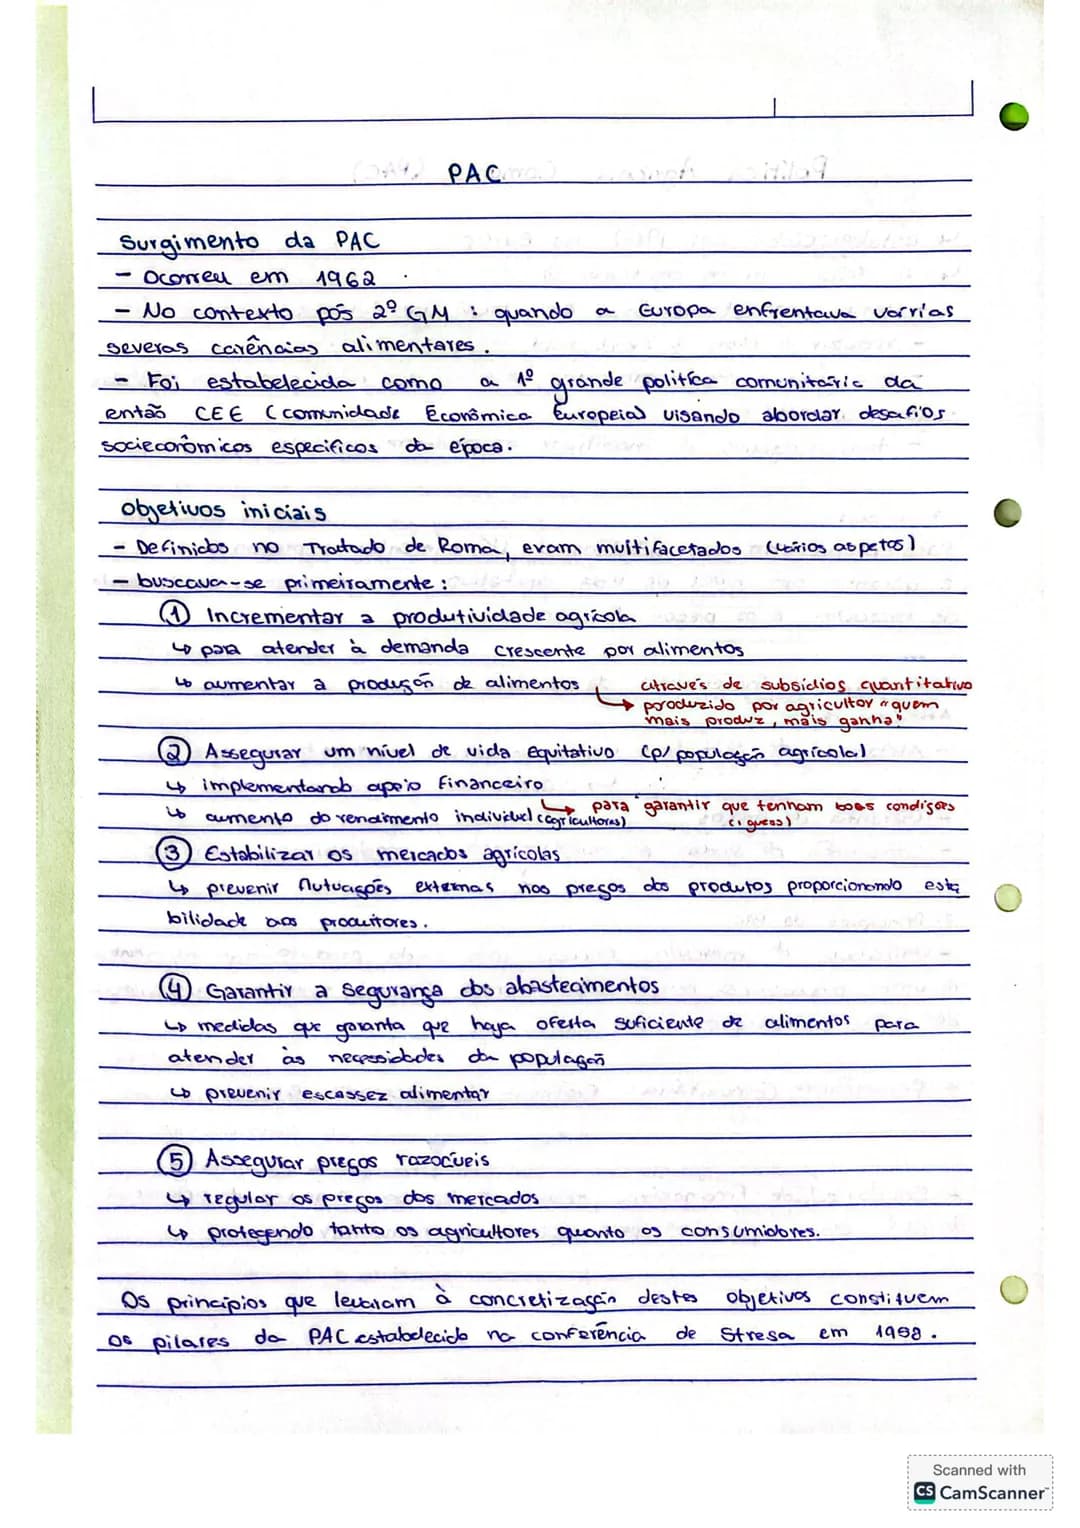 PAC
Surgimento da PAC
- Ocorreu em 1962.
- No contexto pós 2º GM : quando a Europa enfrentava varrias
severas carências alimentares.
- Foi estabelecida como a 1º grande politíca comunitária da
então CEE (comunidade Econômica Europeia) visando abordar desafios
sociecorômicos especificos da época.
objetivos iniciais
- Definidos no Tratado de Roma, eram multifacetados (vários aspetos)
- buscava-se primeiramente :
① Incrementar a produtividade agrícola
↳ para atender à demanda crescente por alimentos
↳ aumentar a produção de alimentos
↳ através de subsídios quantitativo
produzido por agricultor "quem
mais produz, mais ganha"
② Assegurar um nível de vida Equitativo (p/ população agrícola)
↳ implementando apoio financeiro
↳ para garantir que tenham boas condições
(i guess)
↳ aumento do rendimento individual (agricultores)
③ Estabilizar os mercados agrícolas
↳ prevenir flutuações externas nos preços dos produtos proporcionando esta
bilidade aos produtores.
④ Garantir a segurança dos abastecimentos
↳ medidas que garanta que haja oferta suficiente de alimentos para
atender às necessidades da população
↳ prevenir escassez alimentar
⑤ Assegurar preços razoáveis
↳ regular os preços dos mercados
↳ protegendo tanto os agricultores quanto os consumidores.
Os princípios que levaram à concretização destes objetivos constituem
os pilares da PAC estabelecido na conferência de Stresa em 1958.
Scanned with
CS CamScanner